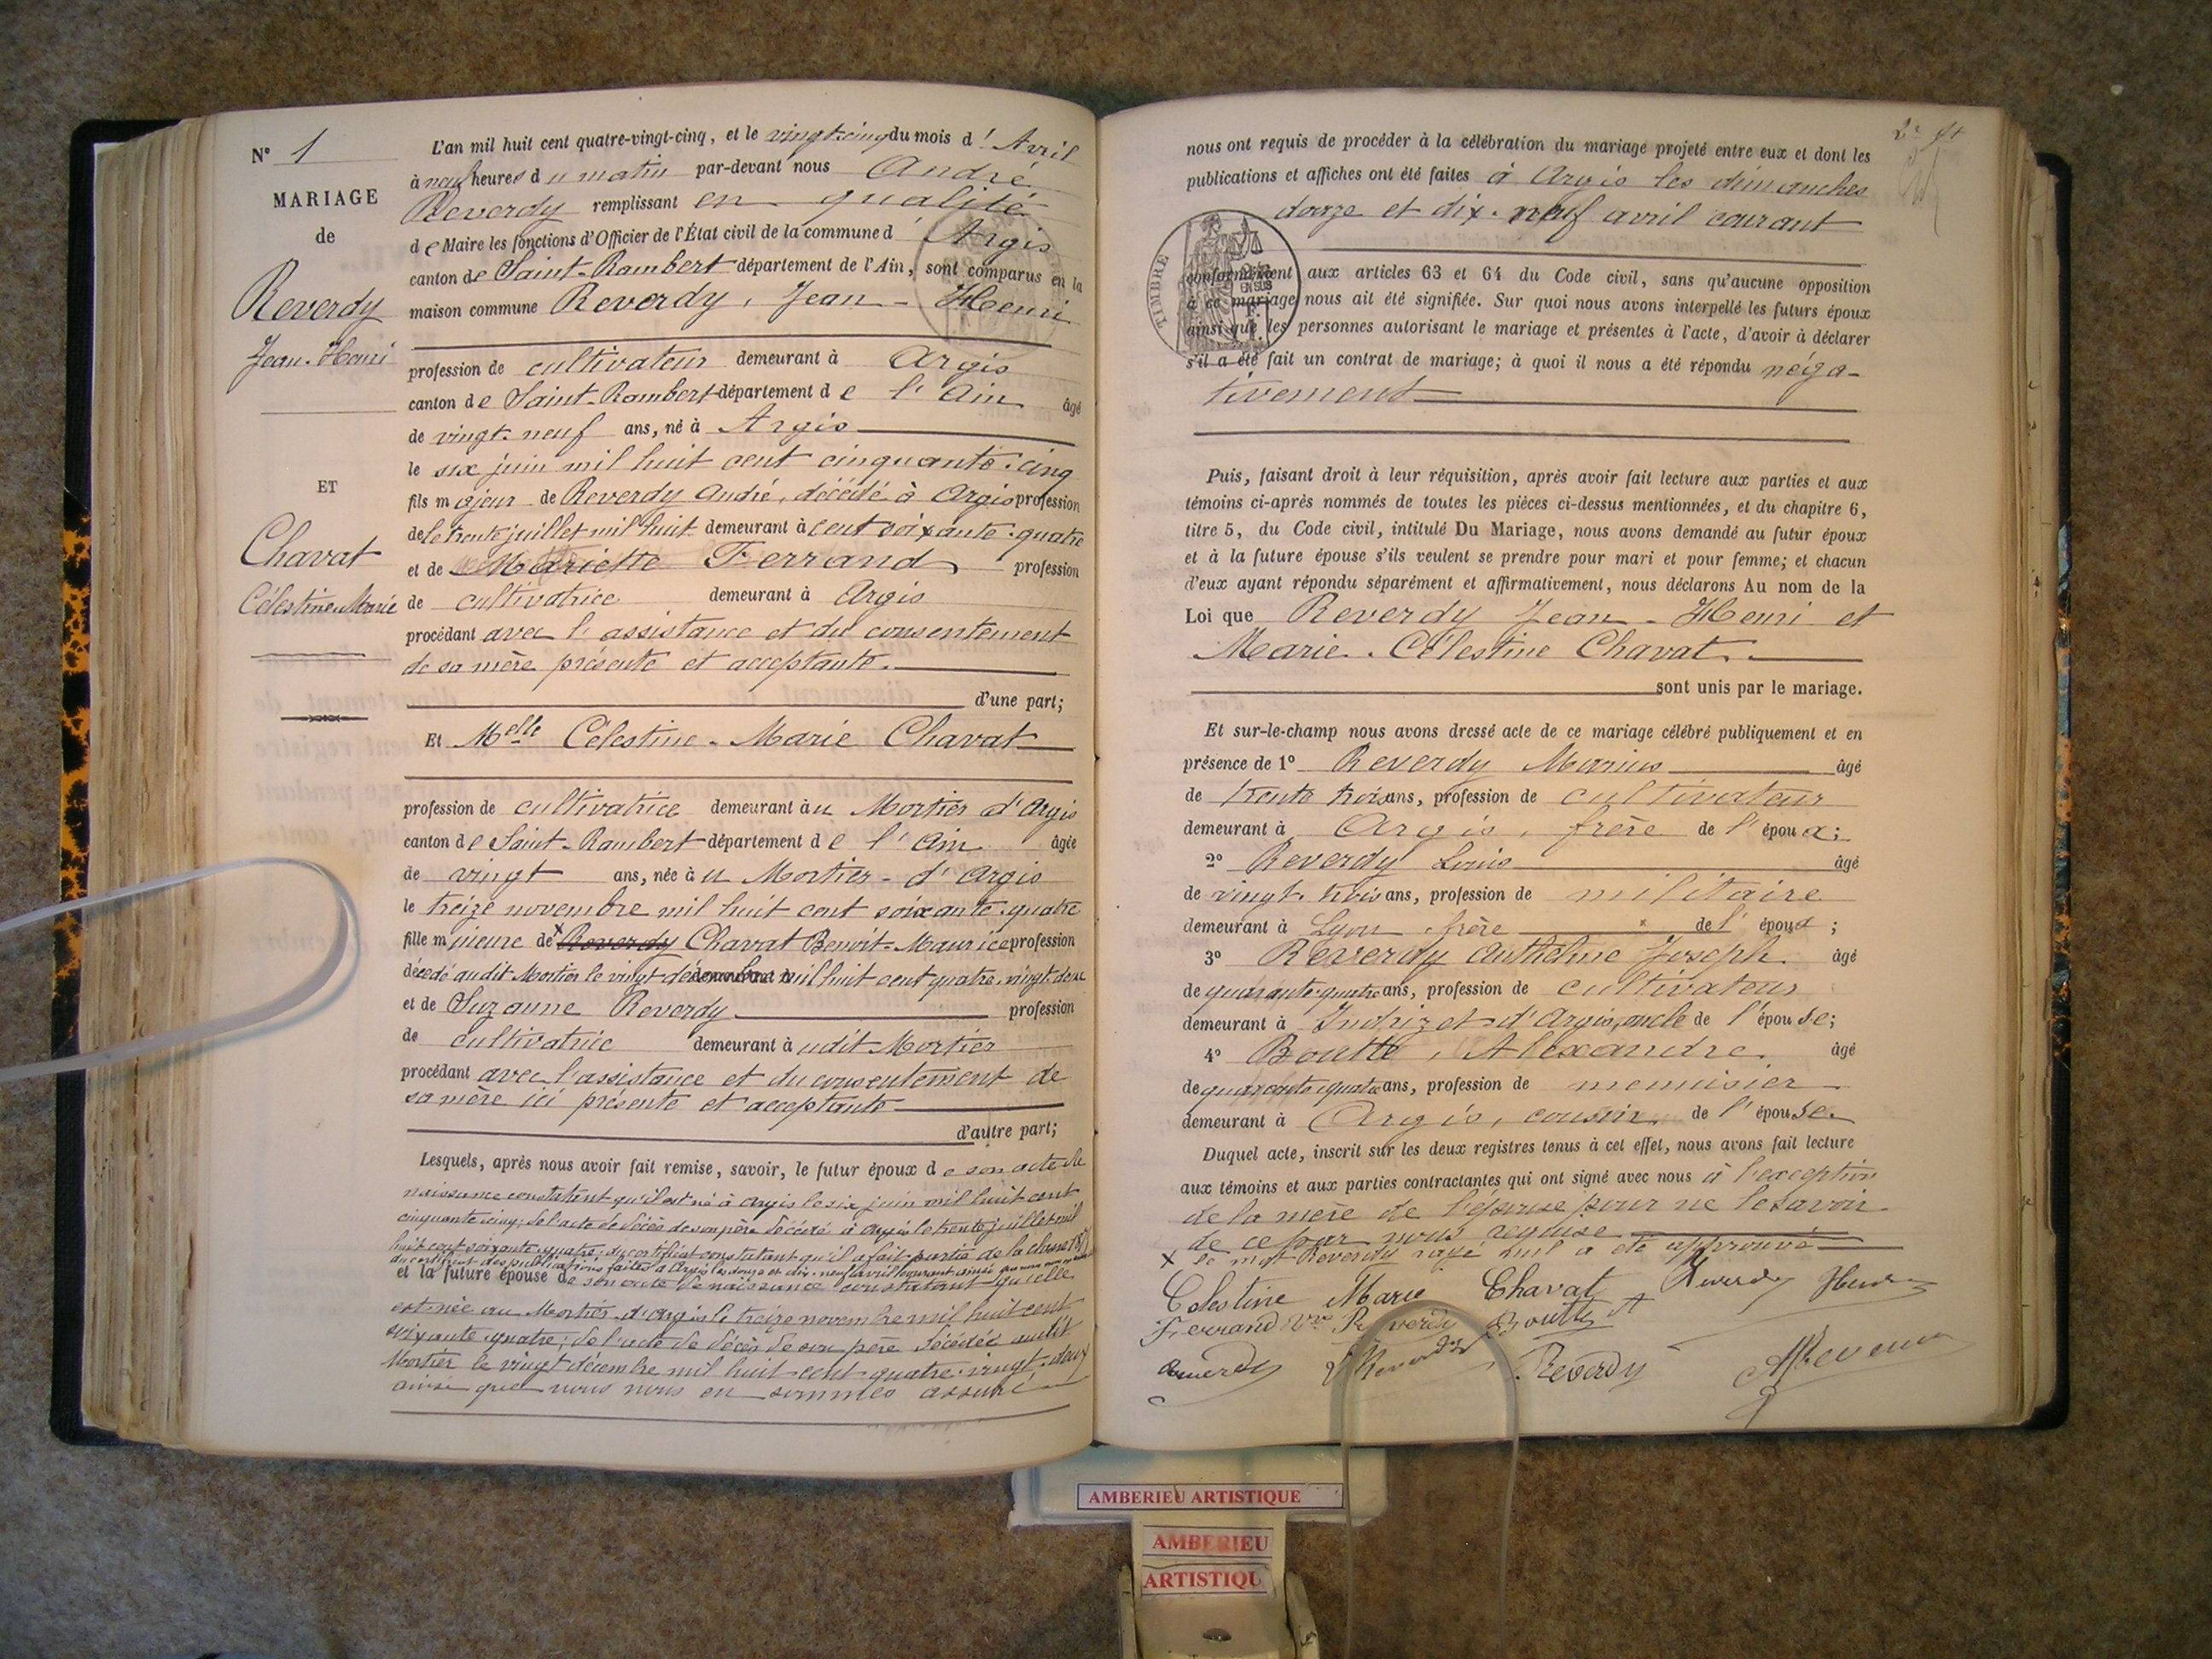 N° 1
MARIAGE
de
Reverdy
Jean-Henri
ET
Chavat
Célestine Marie
L'an mil huit cent quatre-vingt-cinq, et le vingt-cinq du mois d'Avril
à neuf heures du matin par-devant nous André
Reverdy remplissant en qualité
de Maire les fonctions d'Officier de l'État civil de la commune d'Argis
canton de Saint-Rambert département de l'Ain, sont comparus en la
maison commune Reverdy, Jean-Henri
profession de cultivateur demeurant à Argis
canton de Saint-Rambert département de l'Ain âgé
de vingt-neuf ans, né à Argis
le six juin mil huit cent cinquante-cinq
fils majeur de Reverdy André, décédé à Argis profession
de le trente juillet mil huit demeurant à cent soixante-quatre
et de Mariette Ferrand profession
de cultivatrice demeurant à Argis
procédant avec l'assistance et du consentement
de sa mère présente et acceptante.
d'une part;
Et Melle Célestine-Marie Chavat
profession de cultivatrice demeurant au Mortier d'Argis
canton de Saint-Rambert département de l'Ain âgée
de vingt ans, née au Mortier-d'Argis
le treize novembre mil huit cent soixante-quatre
fille mineure de x Reverdy Chavat Benoit-Maurice profession
décédé audit Mortier le vingt décembre mil huit cent quatre-vingt-deux
et de Suzanne Reverdy profession
de cultivatrice demeurant audit Mortier
procédant avec l'assistance et du consentement de
sa mère ici présente et acceptante
d'autre part;
Lesquels, après nous avoir fait remise, savoir, le futur époux de son acte de
naissance constatant qu'il est né à Argis le six juin mil huit cent
cinquante-cinq; de l'acte de décès de son père décédé à Argis le trente juillet mil
huit cent soixante-quatre; du certificat constatant qu'il a fait partie de la classe
du certificat des publications faites à Argis les douze et dix-neuf avril courant ainsi
et la future épouse de son acte de naissance constatant qu'elle
est née au Mortier d'Argis le treize novembre mil huit cent
soixante-quatre; de l'acte de décès de son père décédé audit
Mortier le vingt décembre mil huit cent quatre-vingt-deux
ainsi que nous nous en sommes assuré
nous ont requis de procéder à la célébration du mariage projeté entre eux et dont les
publications et affiches ont été faites à Argis les dimanches
douze et dix-neuf avril courant
TIMBRE
conformément aux articles 63 et 64 du Code civil, sans qu'aucune opposition
à ce mariage nous ait été signifiée. Sur quoi nous avons interpellé les futurs époux
ainsi que les personnes autorisant le mariage et présentes à l'acte, d'avoir à déclarer
s'il a été fait un contrat de mariage; à quoi il nous a été répondu néga-
tivement
Puis, faisant droit à leur réquisition, après avoir fait lecture aux parties et aux
témoins ci-après nommés de toutes les pièces ci-dessus mentionnées, et du chapitre 6,
titre 5, du Code civil, intitulé Du Mariage, nous avons demandé au futur époux
et à la future épouse s'ils veulent se prendre pour mari et pour femme; et chacun
d'eux ayant répondu séparément et affirmativement, nous déclarons Au nom de la
Loi que Reverdy Jean-Henri et
Marie-Célestine Chavat.
sont unis par le mariage.
Et sur-le-champ nous avons dressé acte de ce mariage célébré publiquement et en
présence de 1° Reverdy Marius âgé
de trente trois ans, profession de cultivateur
demeurant à Argis, frère de l'époux;
2° Reverdy Louis âgé
de vingt-trois ans, profession de militaire
demeurant à Lyon, frère de l'époux;
3° Reverdy Anthelme Joseph. âgé
de quarante-quatre ans, profession de cultivateur
demeurant à Indrizet d'Argis, oncle de l'épouse;
4° Boutte, Alexandre. âgé
de quarante-quatre ans, profession de menuisier
demeurant à Argis, cousin de l'épouse.
Duquel acte, inscrit sur les deux registres tenus à cet effet, nous avons fait lecture
aux témoins et aux parties contractantes qui ont signé avec nous à l'exception
de la mère de l'épouse pour ne le savoir
de ce par nous requise
x le mot Reverdy rayé nul a été approuvé
Celestine Marie Chavat Reverdy Henri
Ferrand Vve Reverdy Boutte A
Reverdy Reverdy
AMBERIEU ARTISTIQUE
AMBERIEU
ARTISTIQU